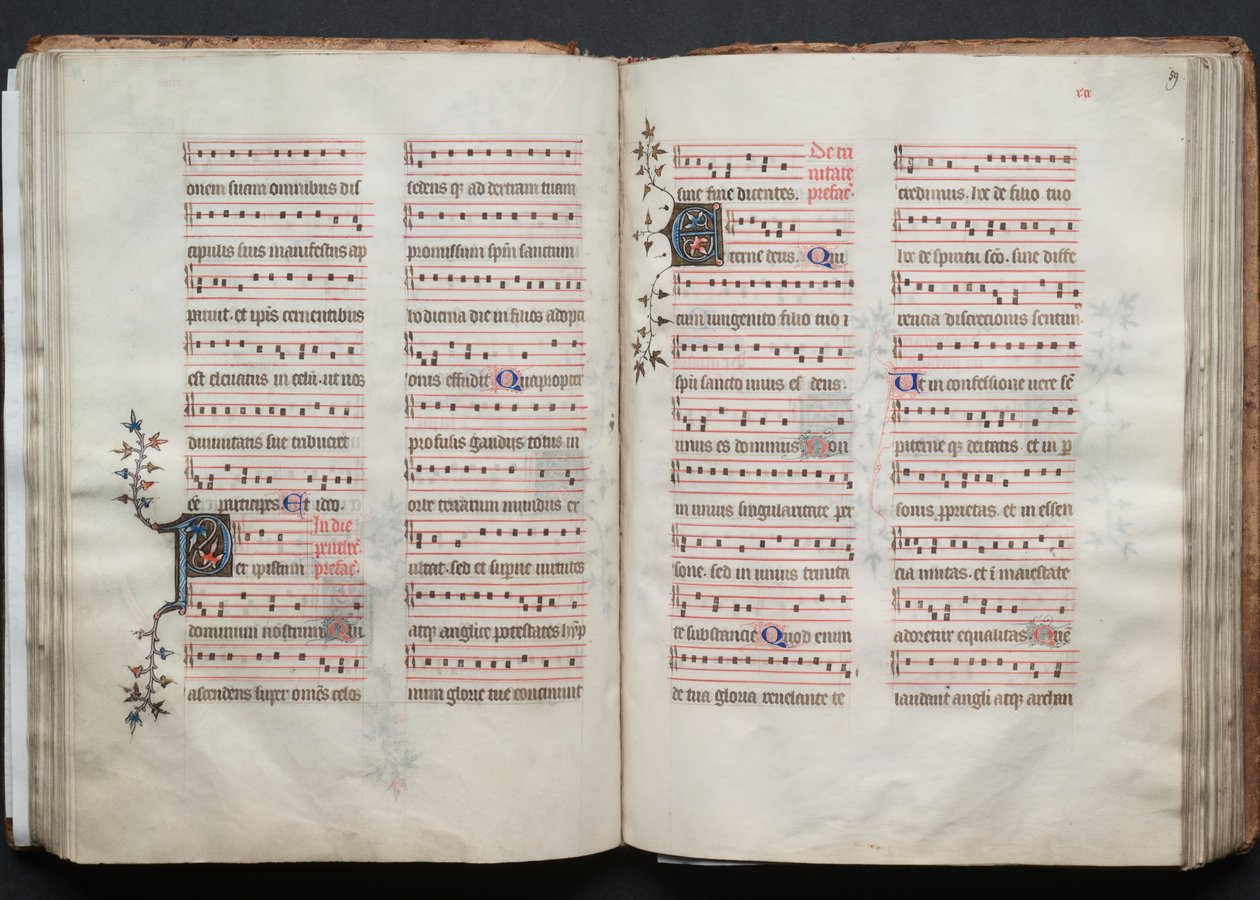 onem suam omnibus dis
cipulis suis manifestus ap
paruit. et ip̄is cernentibus
est eleuatus in celū. ut nos
diuinitatis sue tribueret
ee̅ participes. Et ideo.
In die
penthe᷒.
prefac̅.
Per cpristum
dominum nostrum Qui
ascendens super om̅es celos
sedens q; ad dexteram tuam
promissum sp̅m sanctum
hodierna die in filios adopti
onis effudit Quapropter
profusis gaudijs totus in
orbe terrarum mundus ex
ultat. sed et superne uirtutes
atq; angelice potestates hyp
num glorie tue concinunt
59
xix
sine fine dicentes.
De tri
nitate
prefac̅.
Eterne deus. Qui
cum unigenito filio tuo ⁊
sp̅u sancto unus es deus.
unus es dominus Non
in unius singularitate per
sone. sed in unius trinita
te substancie Quod enim
de tua gloria reuelante te
credimus. hoc de filio tuo
hoc de spiritu sc̅o. sine diffe
rencia discrecionis sentim᷒.
Ut in confessione uere se̅
piterne q; deitatis. et in p̲
sonis ꝓprietas. et in essen
cia unitas. et ī maiestate
adoretur equalitas Que̅
laudant angl̅i atq; archan